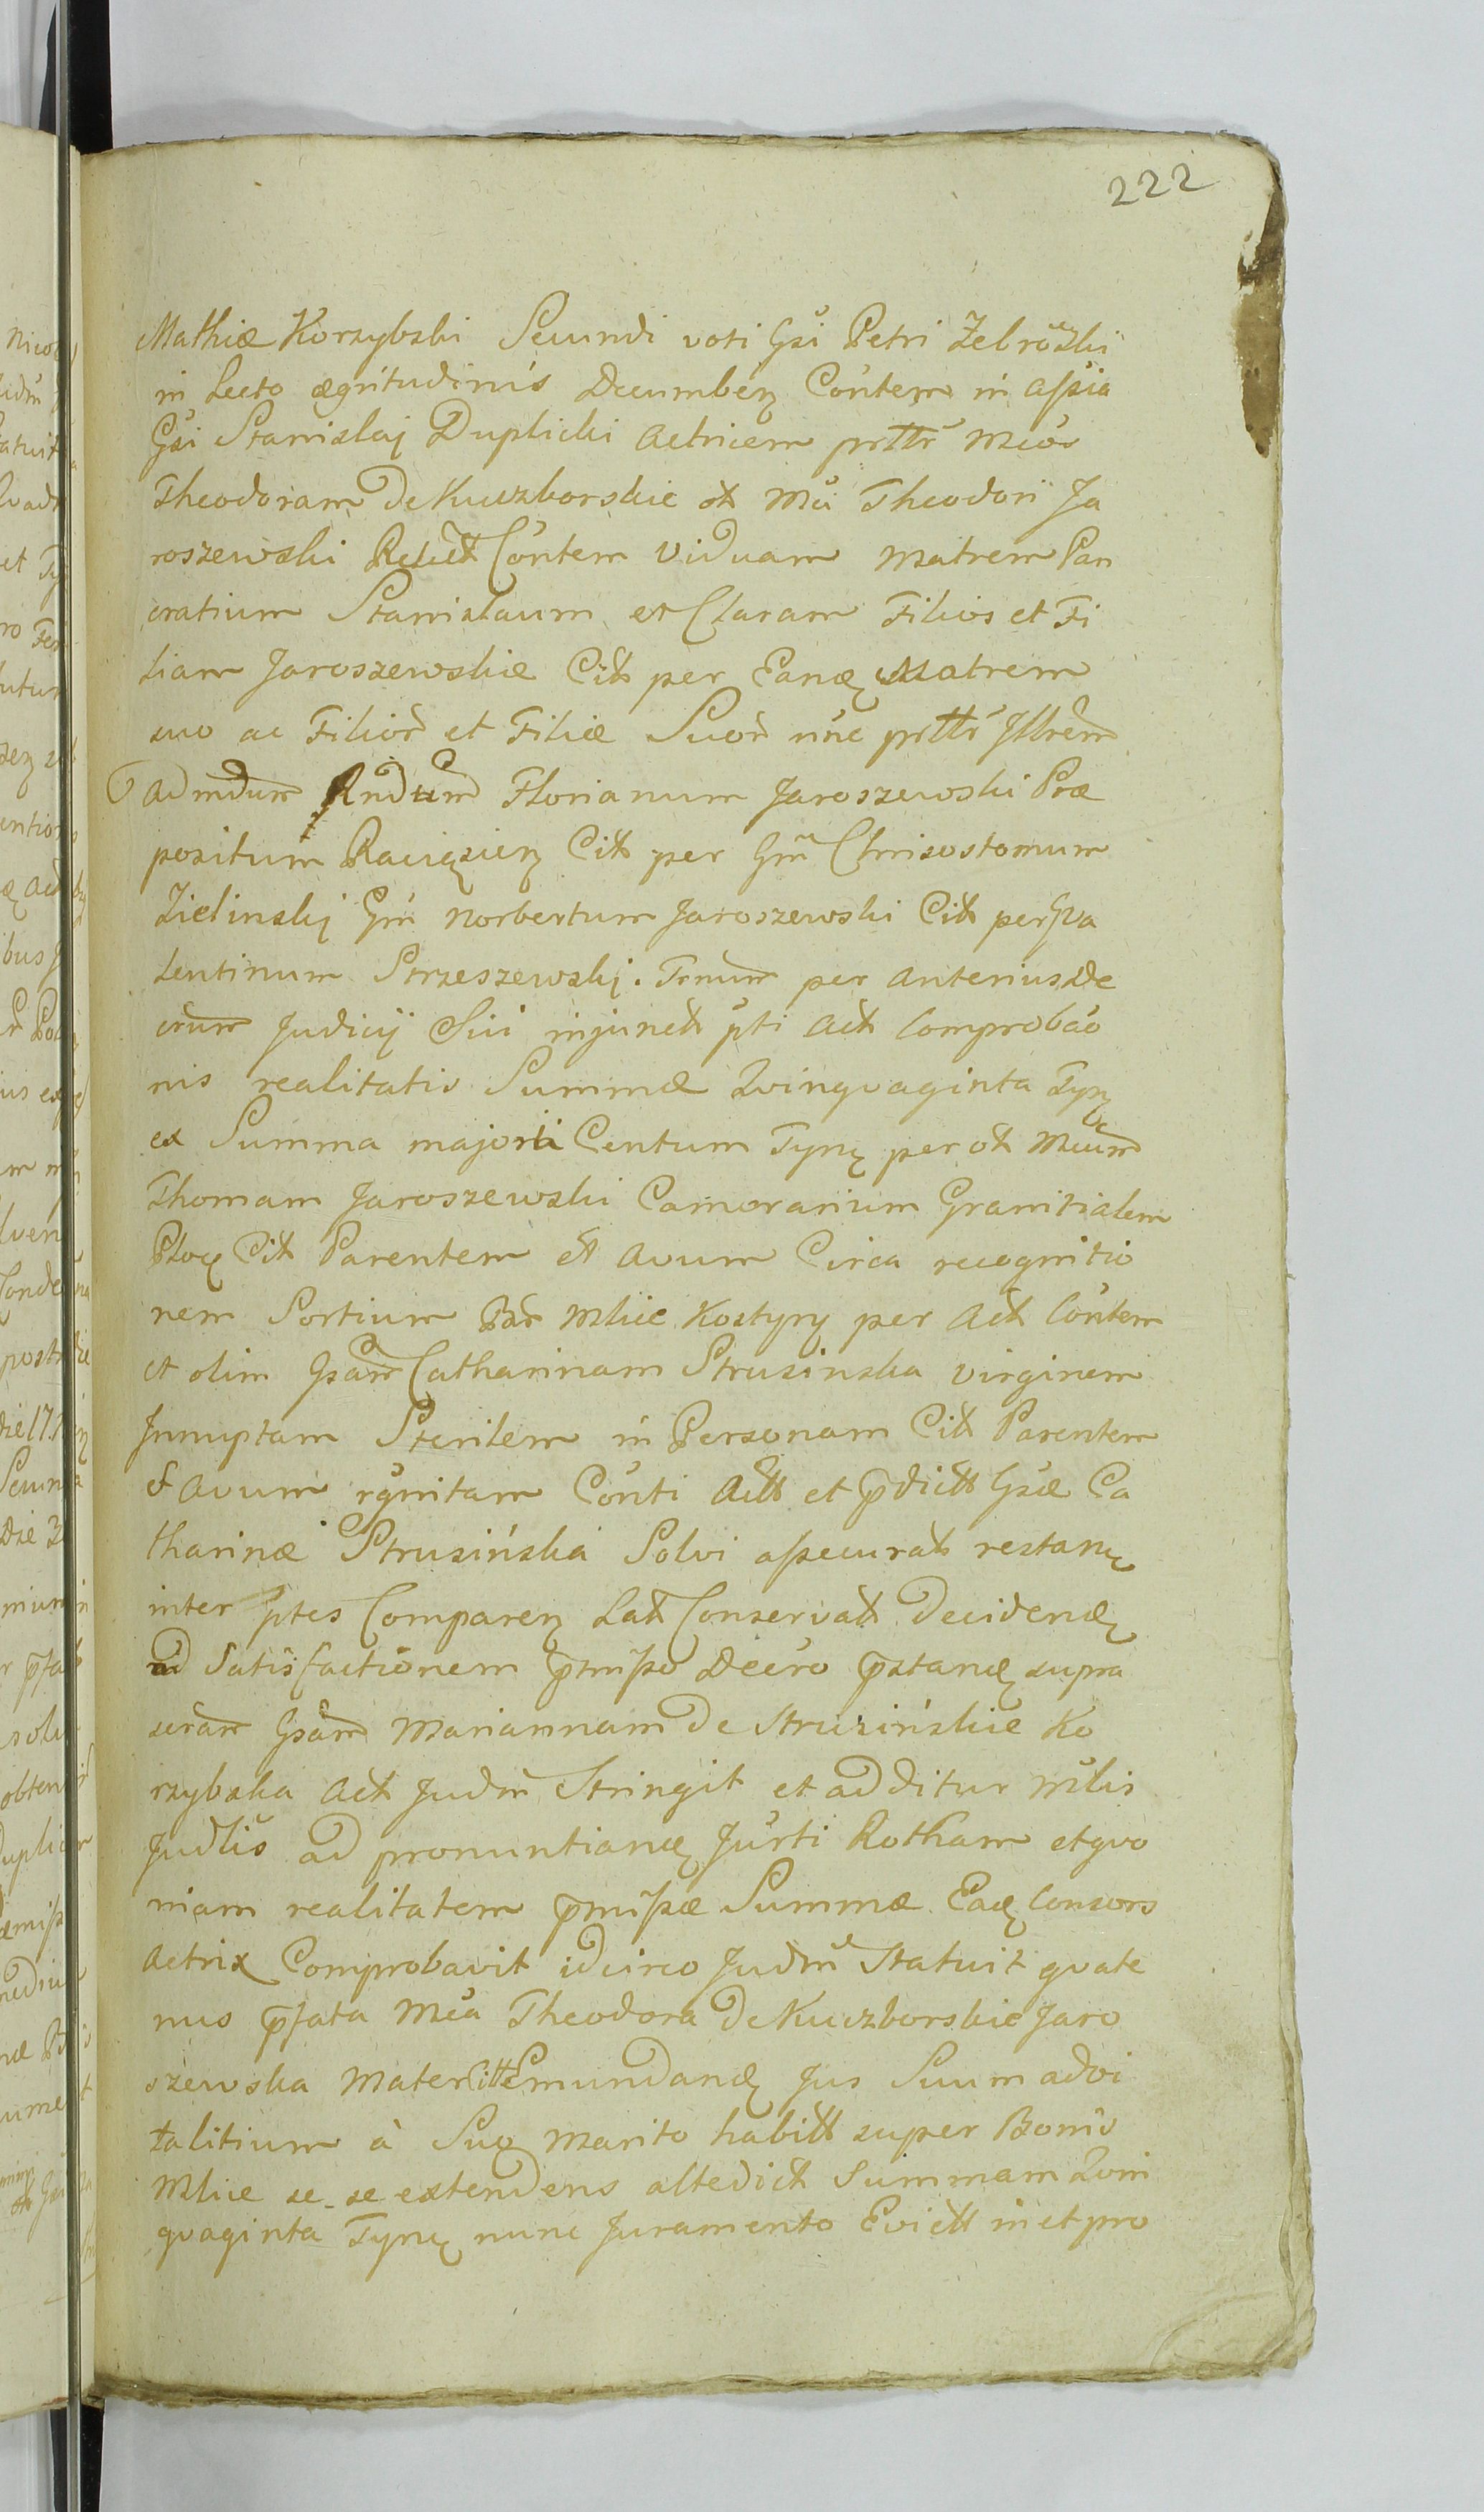 222
Mathiæ Korzybski Secundi voti Gsi Petri Zebrowski
in Lecto ægritudinis Decumben Contem in assia
Gsi Stanislaj Duplicki Actricem prttr Mcos
Theodoram De Kuczborskie ol Mci Theodori Ja
roszewski Relict Contem viduam Matrem Pan
cratium Stanislaum et Claram Filios et Fi
liam Jaroszewskie Cit per Eanq Matrem
suo ac Filior et Filiæ Suor nnc prttr Jllrem
Admdum Rndum Florianum Jaroszewski Præ
positum Raciązien Cit per Gm Chrisostomum
Zielinskj Gm Norbertum Jaroszewski Cit per Va
lentinum Strzeszewskj. Trnum per anterius De
crum Judicij Sui injunct pti Act Comprobao
nis realitatis Summæ Qvinqvaginta Tyn
ex Summa majori Centum Tync per ol Mcum
Thomam Jaroszewski Camerarium Granitialem
Ploc Cit Parentem et Avum Circa recognitio
nem Sortium Bar Mlice Kostyny per Act Contem
et olim Gsam Catharinam Strusinska virginem
Jnnuptam Sterilem in Personam Cit Parentem
& Avum rgnitam Conti Actt et pdictt Gsæ Ca
tharinæ Strusińska Solvi assecurat restanc
inter ptes Comparen Lat Conservatt Decidend
ad Satisfactionem pmisso Decro pstand supra
scram Gsam Mariannam De Strusińskie Ko
rzybska Act Judm Stringit et additur Mtlis
Judlis ad pronuntiand Jurti Rotham et qvo
niam realitatem pmissæ Summæ Eadq Consors
Actrix Comprobavit idcirco Judm Statuit qvate
nus pfata Mca Theodora De Kuczborskie Jaro
szewska Mater Citt Emundand Jus Suum advi
talitium à Suo Marito habitt super Bonis
Mlice se se extendens altedict Summam Qvin
qvaginta Tync nunc Juramento Evictt in et pro